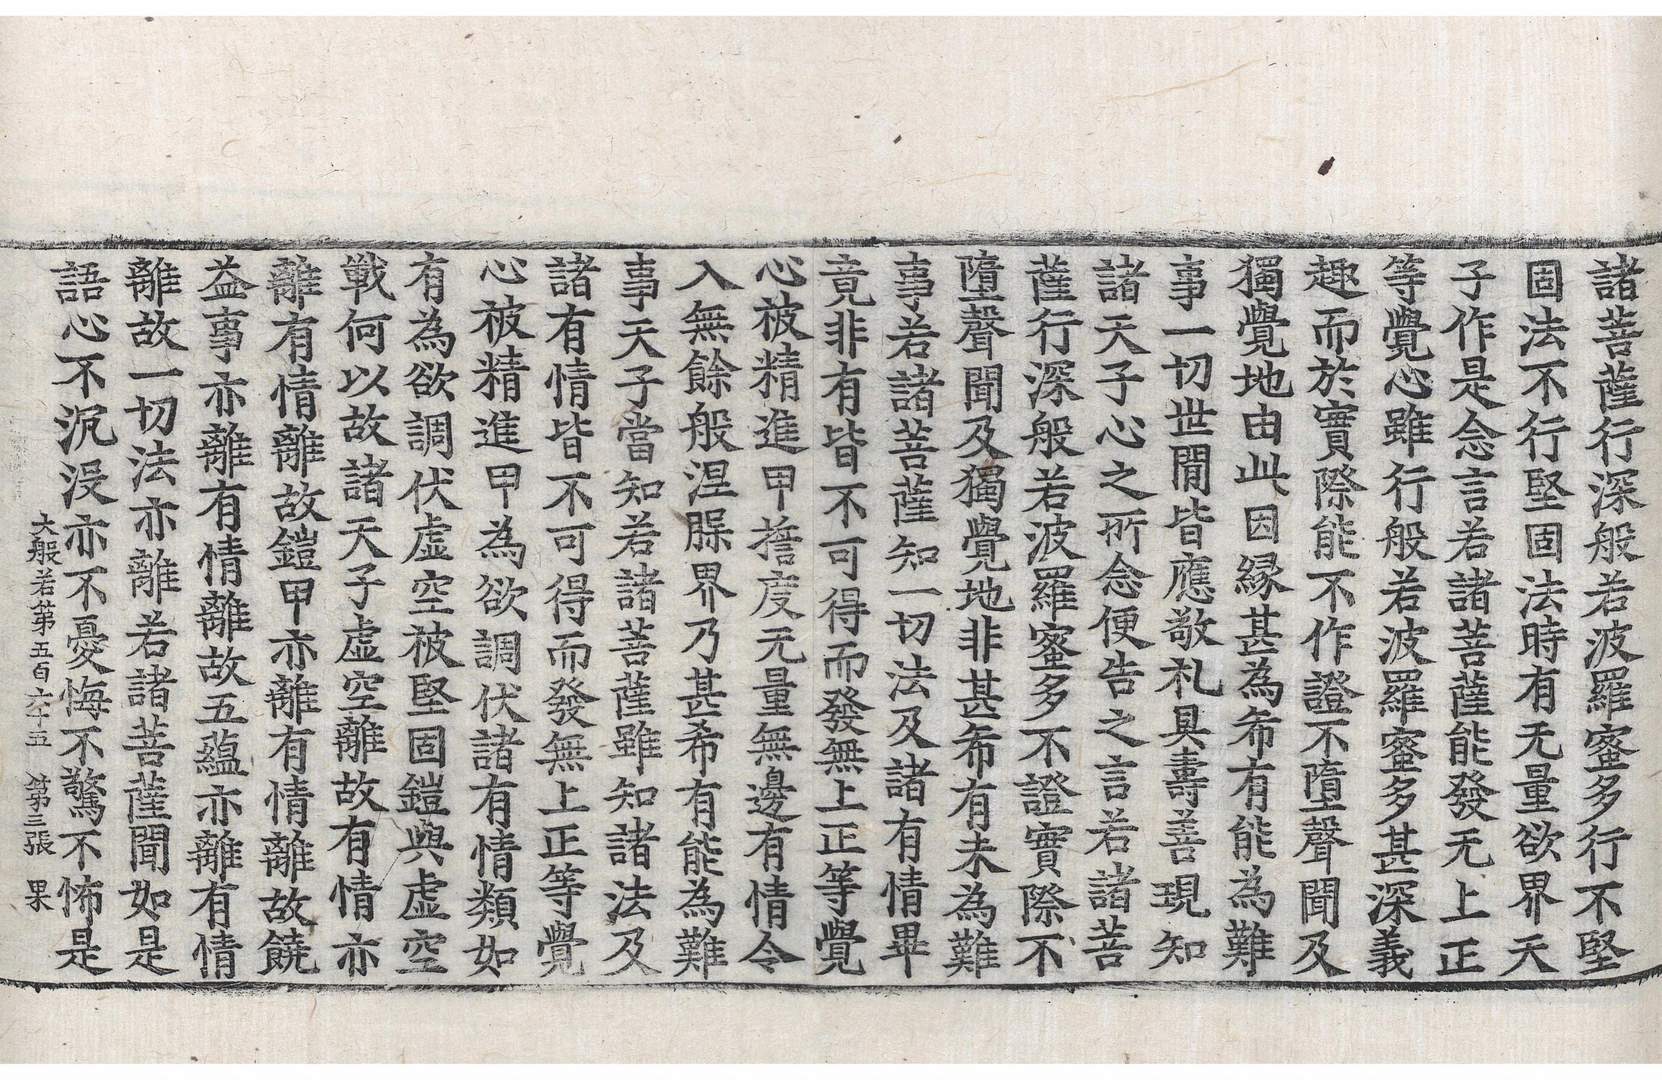 諸菩薩行深般若波羅蜜多行不堅
固法不行堅固法時有无量欲界天
子作是念言若諸菩薩能發无上正
等覺心雖行般若波羅蜜多甚深義
趣而於實際能不作證不墮聲聞及
獨覺地由此因緣甚為希有能為難
事一切世閒皆應敬礼具壽善現知
諸天子心之所念便告之言若諸菩
薩行深般若波羅蜜多不證實際不
墮聲聞及獨覺地非甚希有未為難
事若諸菩薩知一切法及諸有情畢
竟非有皆不可得而發無上正等覺
心被精進甲擔度无量無邊有情令
入無餘般涅槃界乃甚希有能為難
事天子當知若諸菩薩雖知諸法及
諸有情皆不可得而發無上正等覺
心被精進甲為欲調伏諸有情類如
有為欲調伏虛空被堅固鎧與虛空
戰何以故諸天子虛空離故有情亦
離有情離故鎧甲亦離有情離故饒
益事亦離有情離故五蘊亦離有情
離故一切法亦離若諸菩薩聞如是
語心不沉没亦不憂悔不驚不怖是
大般若第五百六十五 第三張 果